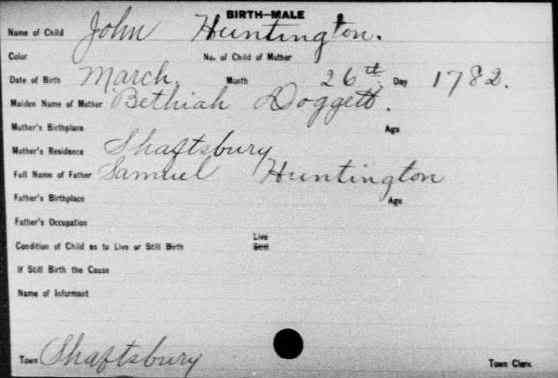 BIRTH—MALE
Name of Child John Huntington.
Color No. of Child of Mother
Date of Birth March Month 26th Day 1782.
Maiden Name of Mother Bethiah Doggett.
Mother's Birthplace Age
Mother's Residence Shaftsbury
Full Name of Father Samuel Huntington
Father's Birthplace Age
Father's Occupation
Live
Condition of Child as to Live or Still Birth Still
If Still Birth the Cause
Name of Informant
Town Shaftsbury Town Clerk